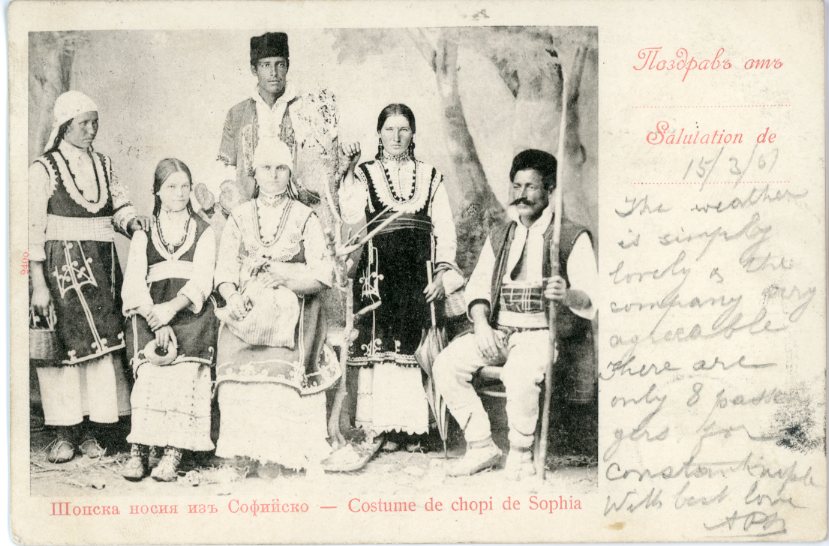 Поздравъ отъ
Salutation de
15/3/01
The weather
is simply
lovely & the
company very
agreeable
There are
only 8 passen
gers for
Constantinople
With best love
Шопска носия изъ Софийско — Costume de chopi de Sophia